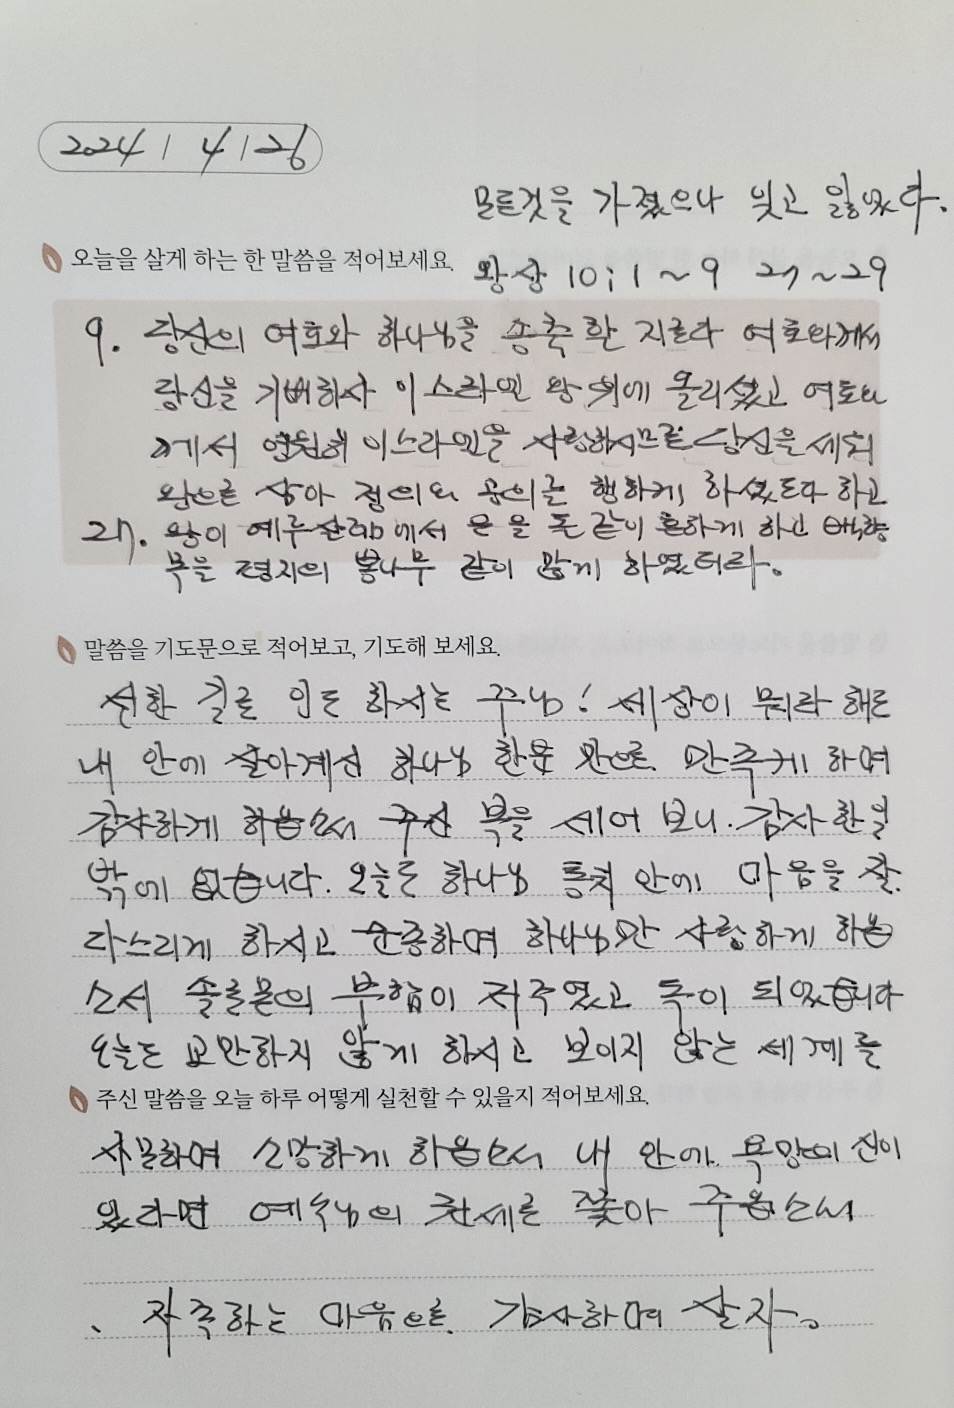 2024 / 4 / 26
모든것을 가졌으나 잊고 잃었다.
오늘을 살게 하는 한 말씀을 적어보세요.
왕상 10:1~9 27~29
9. 당신의 여호와 하나님을 송축 할 지로다 여호와께서
당신을 기뻐하사 이스라엘 왕 위에 올리셨고 여호와
께서 영원히 이스라엘을 사랑하시므로 당신을 세워
왕으로 삼아 정의와 공의를 행하게 하셨도다 하고
27. 왕이 예루살렘에서 은을 돌 같이 흔하게 하고 백향
목을 평지의 뽕나무 같이 많게 하였더라.
말씀을 기도문으로 적어보고, 기도해 보세요.
선한 길로 인도 하시는 주님! 세상이 뭐라 해도
내 안에 살아계신 하나님 한분 만으로. 만족케 하며
감사하게 하옵소서 주신 복을 세어 보니. 감사한일
밖에 없습니다. 오늘도 하나님 통치 안에 마음을 잘.
다스리게 하시고 순종하며 하나님만 사랑하게 하옵
소서 솔로몬의 부함이 저주였고 독이 되었습니다
오늘도 교만하지 않게 하시고 보이지 않는 세계를
주신 말씀을 오늘 하루 어떻게 실천할 수 있을지 적어보세요.
사모하며 소망하게 하옵소서 내 안에. 욕망의 신이
있다면 예수님의 권세로 쫓아 주옵소서
. 자족하는 마음으로. 감사하며 살자.